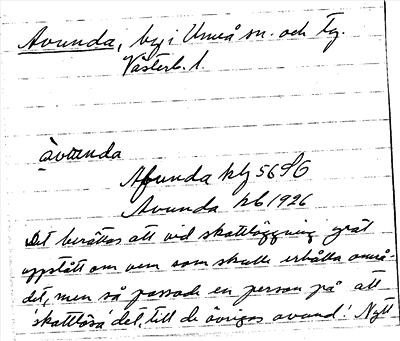 Avunda, by i Umeå sn. och tg.
Västerb. l.
àvunda
Afunda kb 1926
Avunda kb 1926
Det berättas att vid skattläggning gräl
uppstått om vem som skulle erhålla områ-
det, men så passade en person på att
'skattlösa' det, till de övrigas avund! Nytt